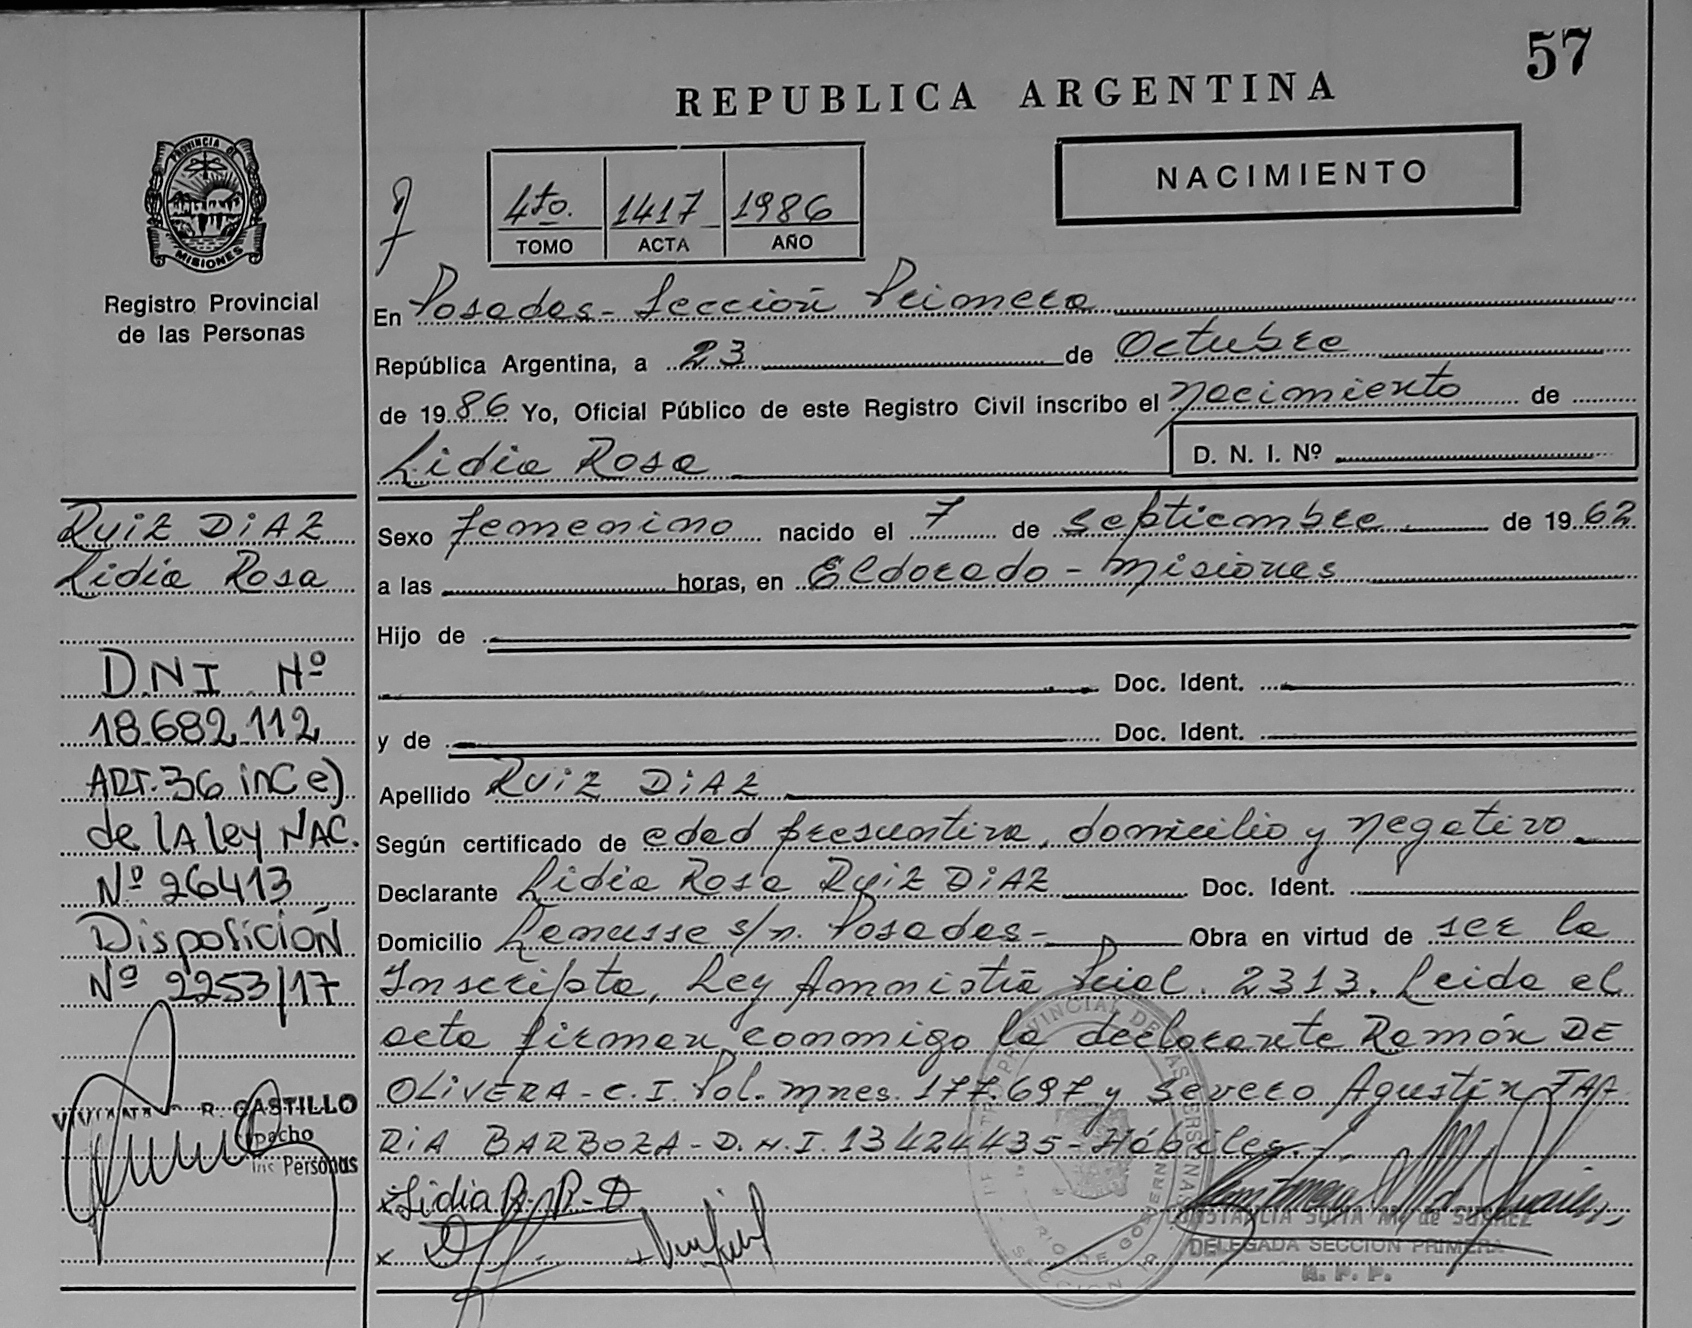 57
REPUBLICA ARGENTINA
NACIMIENTO
4to. 1417 1986
TOMO ACTA AÑO
PROVINCIA DE
MISIONES
Registro Provincial
de las Personas
En Posadas - Sección Primera
República Argentina, a 23 de Octubre
de 1986 Yo, Oficial Público de este Registro Civil inscribo el nacimiento de
Lidia Rosa D. N. I. Nº
Sexo femenino nacido el 7 de septiembre de 1962
a las horas, en Eldorado - Misiones
Hijo de
Doc. Ident.
y de Doc. Ident.
Apellido RUIZ DIAZ
Según certificado de edad presuntiva, domicilio y negativo
Declarante Lidia Rosa RUIZ DIAZ Doc. Ident.
Domicilio s/n. Posadas - Obra en virtud de ser la
Inscripta, Ley Amnistía Pcial. 2313. Leida el
acta firman conmigo la declarante Ramón DE
OLIVERA - C. I. Pol. Mnes. 177.697 y Severo Agustín FAR
RIA BARBOZA - D. N. I. 13424435 - Hábiles.
x Lidia R. R. D
RUIZ DIAZ
Lidia Rosa
DNI Nº
18.682.112
ART. 36 inc e)
de la ley NAC.
Nº 26413
Disposición
Nº 2253/17
R. CASTILLO
pacho
Personas
DELEGADA SECCION PRIMERA
R. P. P.